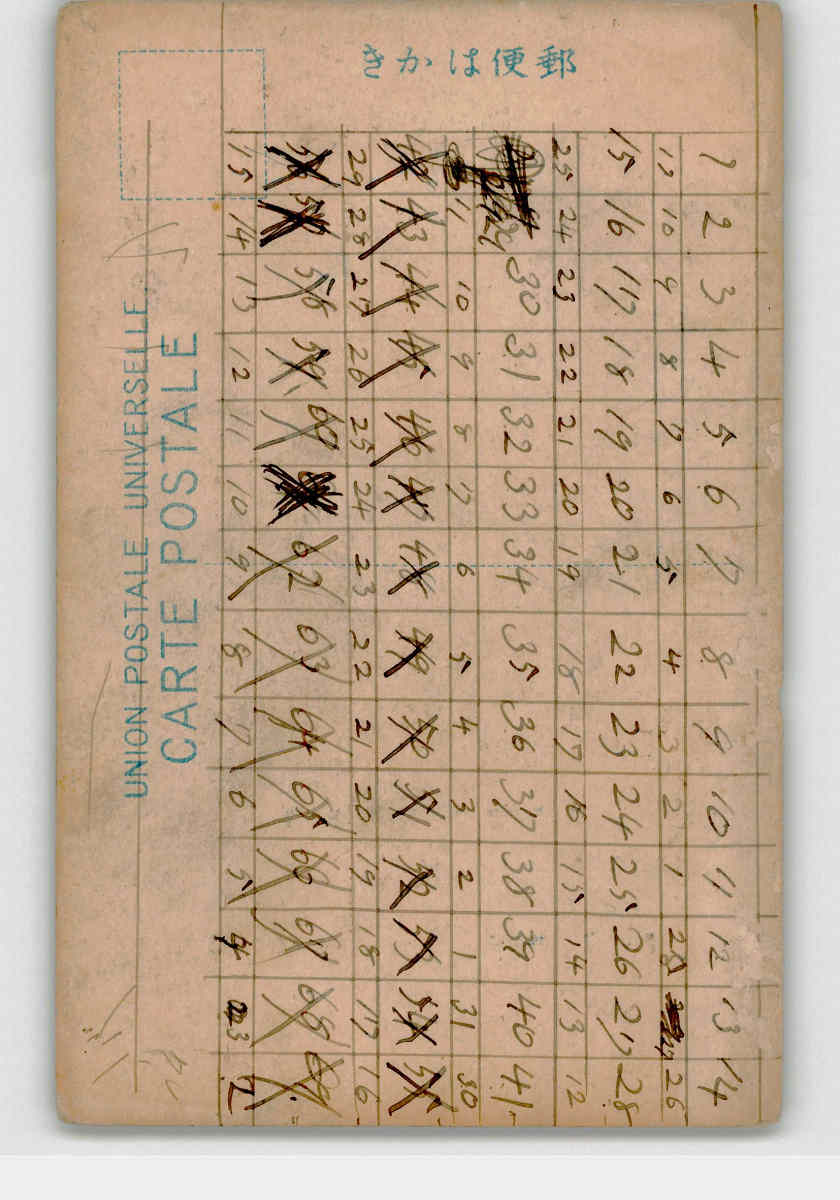 郵便はかき
1 2 3 4 5 6 7 8 9 10 11 12 13 14
10 9 8 7 6 5 4 3 2 1 28 27 26
15 16 17 18 19 20 21 22 23 24 25 26 27 28
25 24 23 22 21 20 19 18 17 16 15 14 13 12
29 30 31 32 33 34 35 36 37 38 39 40 41
11 10 9 8 7 6 5 4 3 2 1 31 30
42 43 44 45 46 47 48 49 50 51 52 53 54 55
29 28 27 26 25 24 23 22 21 20 19 18 17 16
56 57 58 59 60 62 63 64 65 66 67 68 69
15 14 13 12 11 10 9 8 7 6 5 4 3 2
CARTE POSTALE
UNION POSTALE UNIVERSELLE.